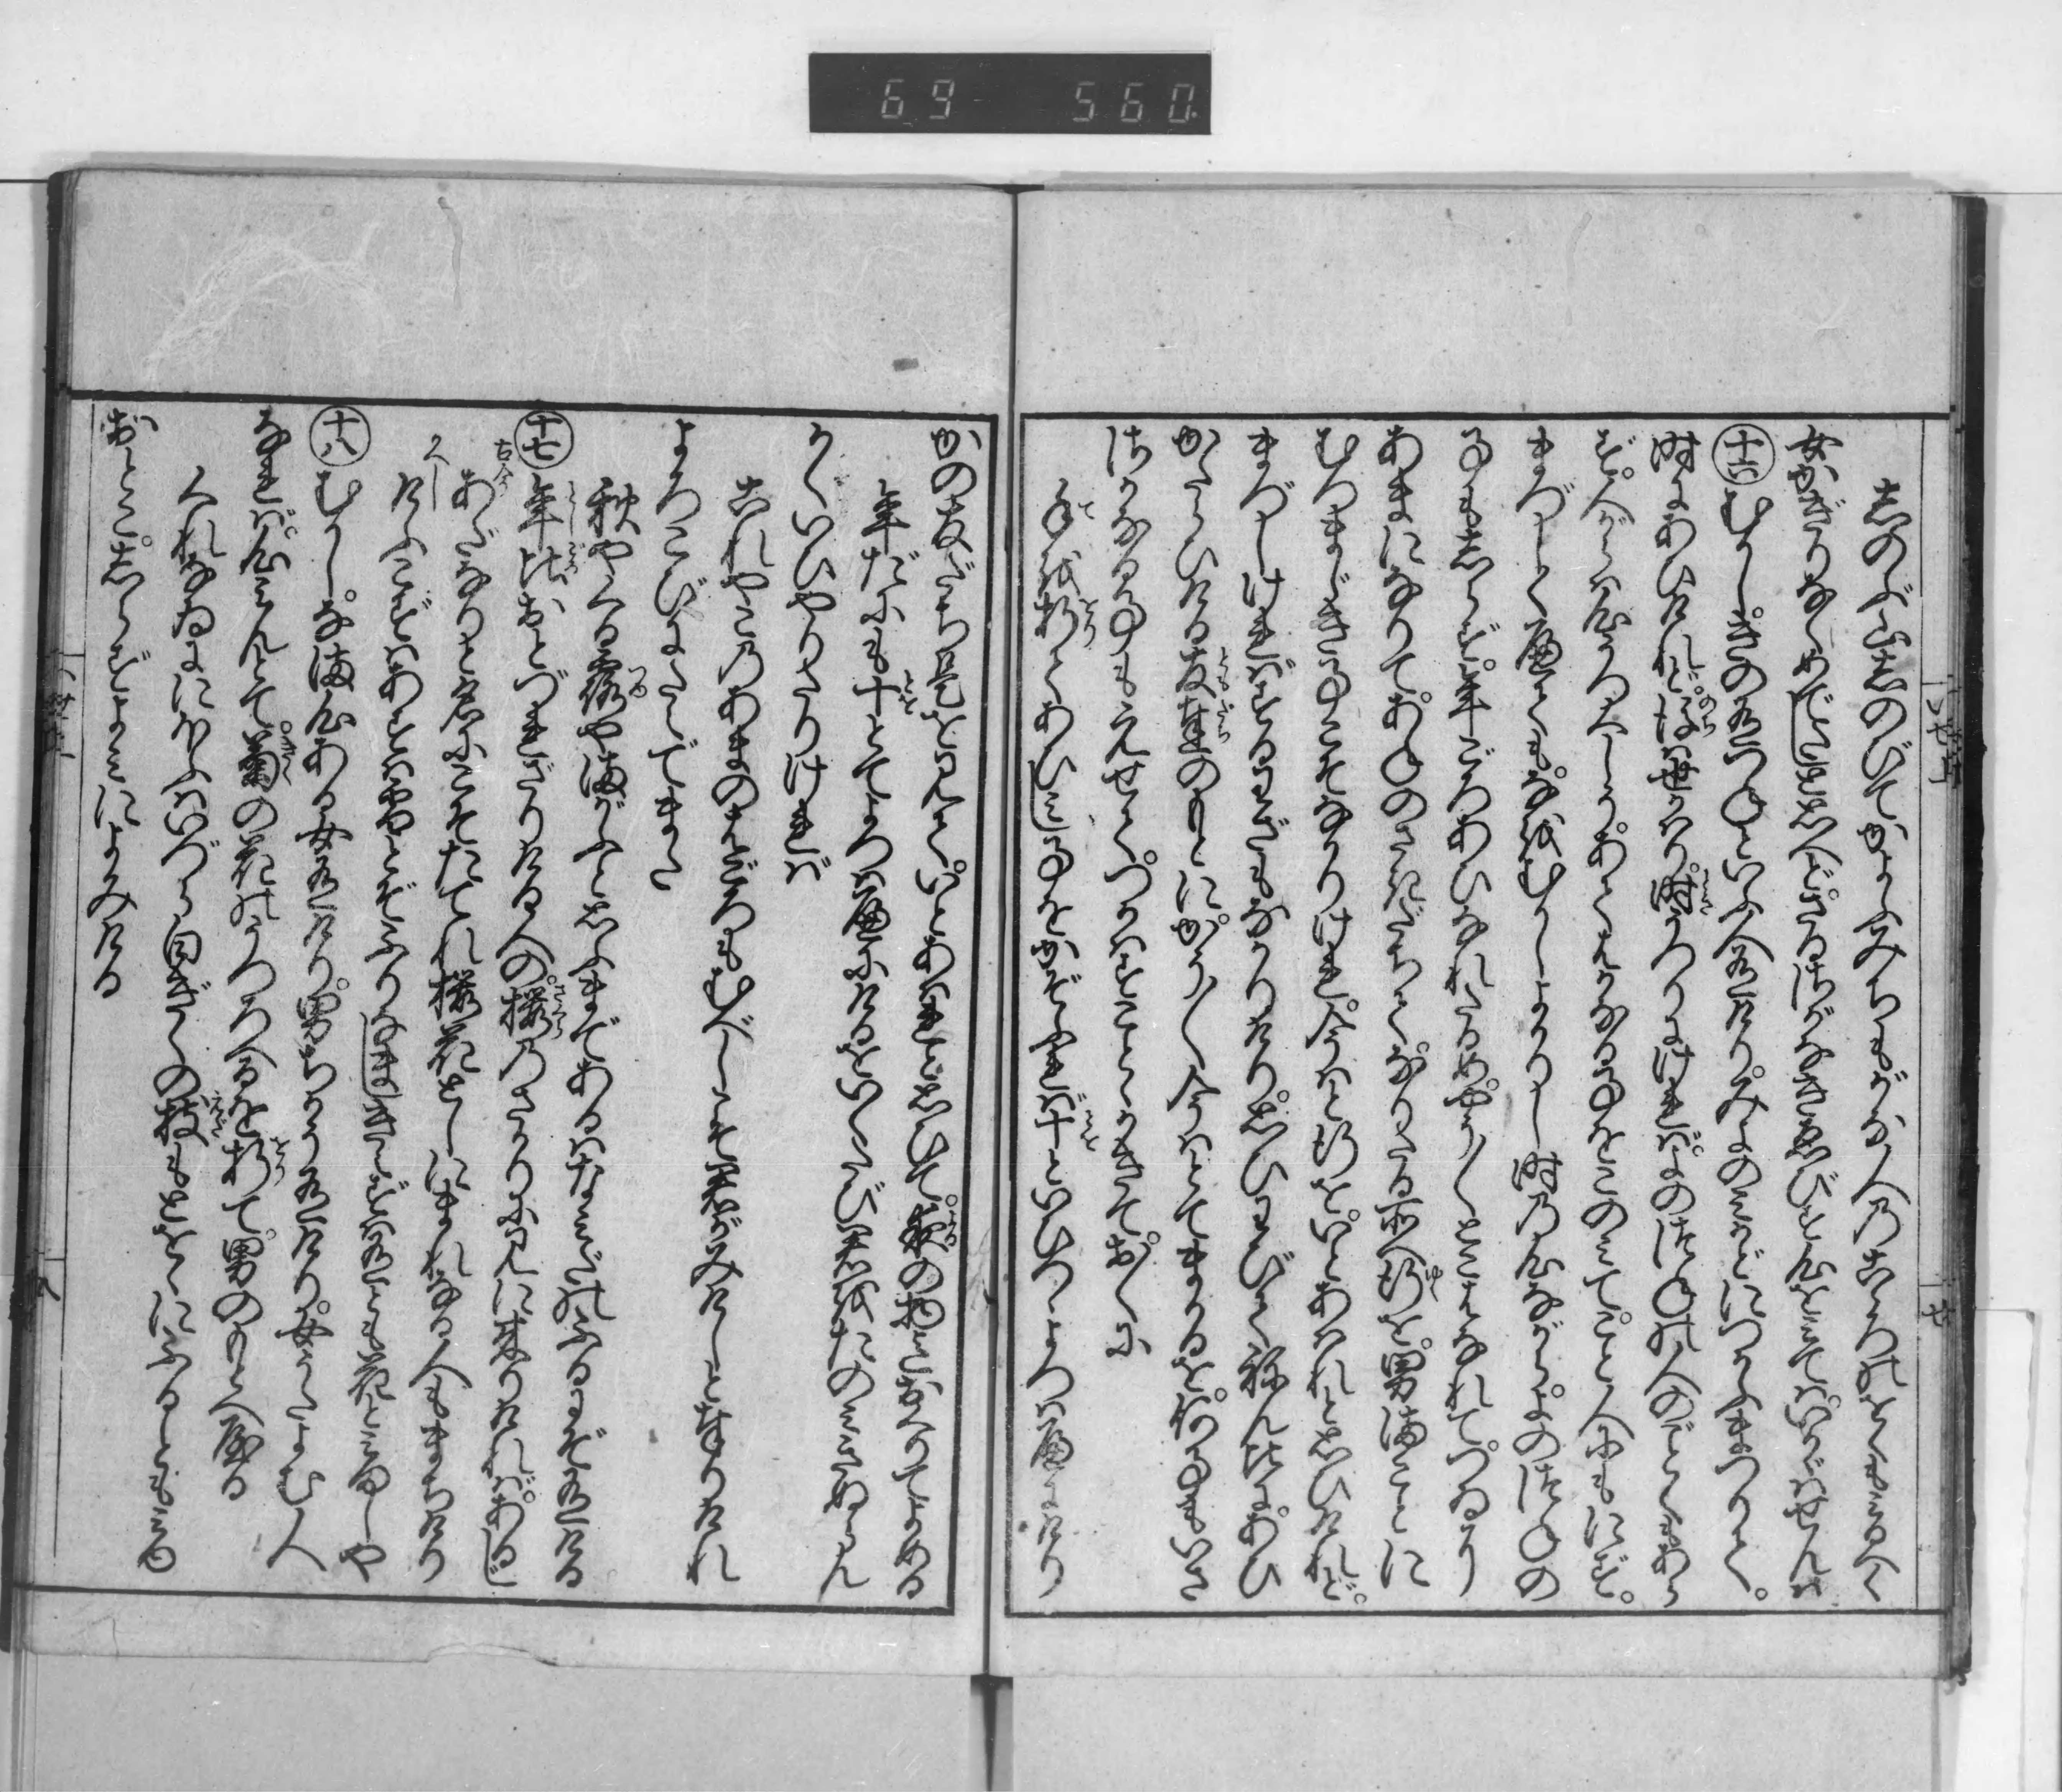 しのぶ山しのびてかよふみちもがな人乃こゝろのおくもみるべく
女かぎりなくめでたしとおもへどさるさがなきゑびす心をみてはいかゞはせんは
十六 むかし。きの有つねといふ人有けり。みよのみかどにつかふまつりて。
時にあひけれど。のちは世かはり。時うつりにければ。よのつねの人のごとくもあら
ず。人がらは心うつくしう。あてはかなる事をこのみて。こと人にもにず。
まづしくへても。なをむかしよかりし時乃心ながら。よのつねの
事もしらず。年ごろあひなれたるめ。やう〳〵とこはなれて。つゐに
あまになりて。あねのさきだちて。なりたる所へ行を。男まことに
むつまじき事こそなかりけれ。今はと行を。いとあはれと思ひけれど。
まづしければするわざもなかりけり。思ひわびてねん比に。あひ
かたらひける友達のもとに。かう〳〵今はとてまかるを。何事もいさ
さかなる事もえせで。つかはすことゝかきて。おくに
手を折てあひみし事をかぞふれば十といひつゝよつはへにけり
かの友だち是を見て。いとあはれと思ひて。夜の物までおくりてよめる
年だにも十とてよつはへにけるをいくたび君をたのみきぬらん
かくいひやりたりければ
これやこ乃あまのは衣むべしこそ君がみけしと奉りけれ
よろこびにたへでまた
秋やくる露やまがふと思ふまであるはなみだのふるにぞ有ける
十七 年比おとづれざりける人の。桜乃さかりに見に来りければ。あるじ
古今 あだなりと名にこそたてれ桜花としにまれなる人もまちけり
返し けふこずはあすは雪とぞふりなましきえずは有とも花とみましや
十八 むかし。なま心ある女有けり。男ちかう有けり。女うたよむ人
なれば。心みんとて。菊の花のうつろへるを折て。男のもとへやる
くれなゐににほふはいづら白ぎくの枝もとをゝにふるとも見ゆ
おとこ。しらずよみによみける
69 560